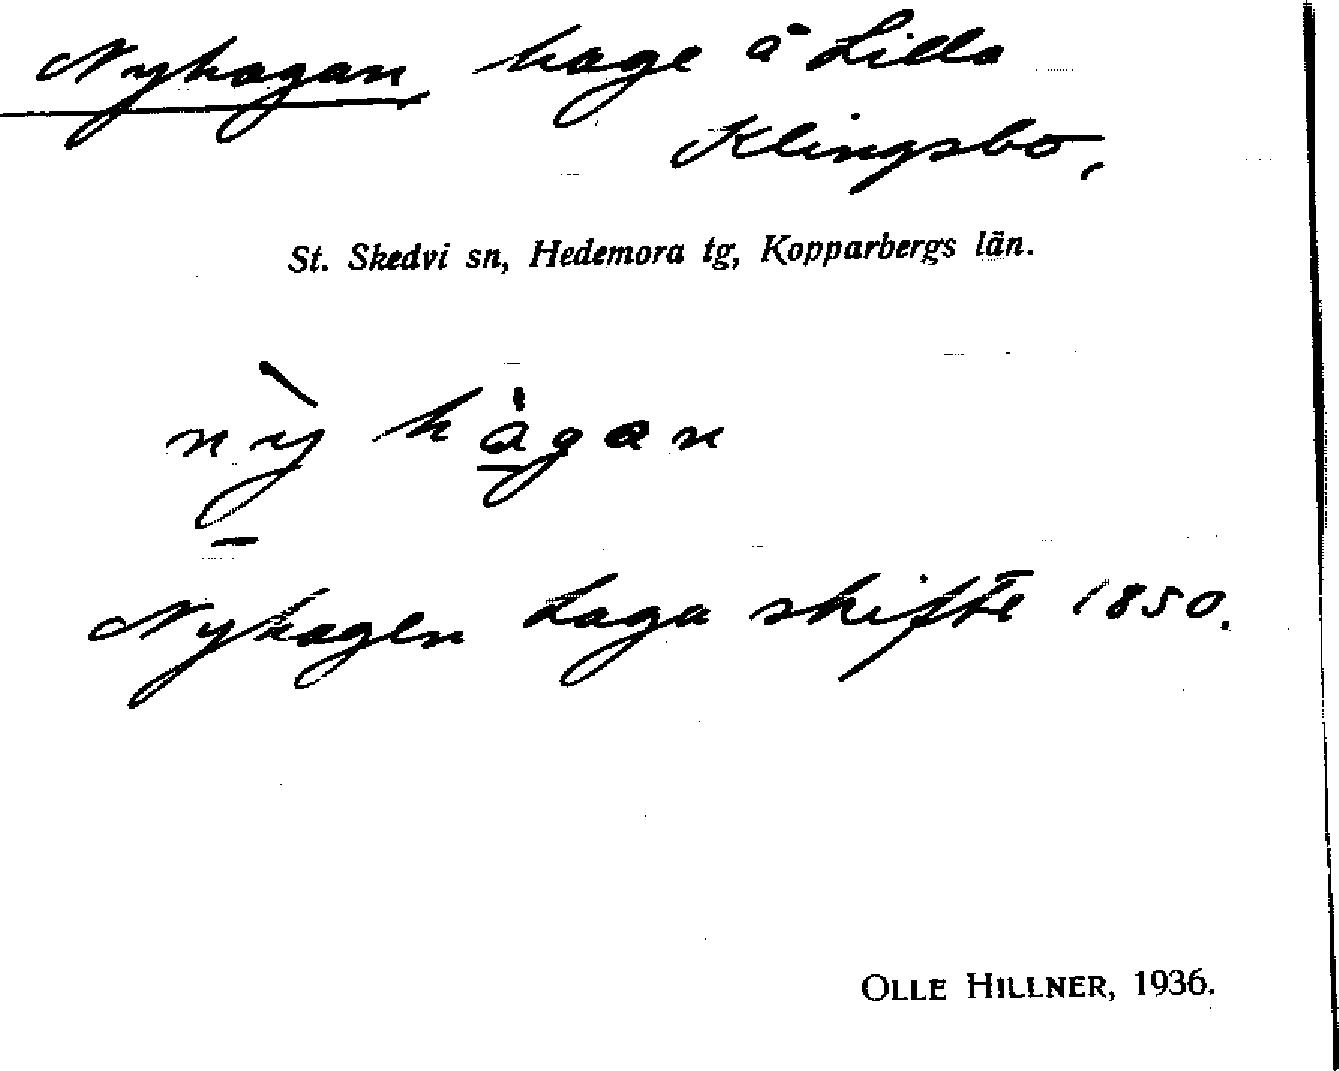 Nyhagan hage å Lilla
Klingsbo,
St. Skedvi sn, Hedemora tg, Kopparbergs län.
nỳhȧgan
Nyhagen Laga skifte 1850.
OLLE HILLNER, 1936.